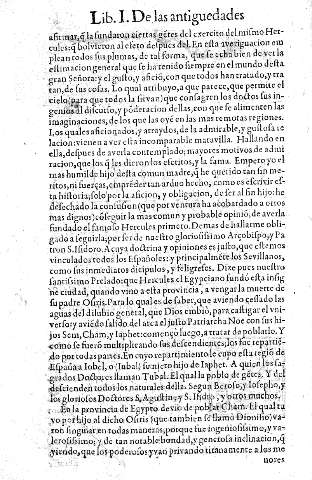 Lib. I. De las antiguedades
afirmar, q̃ la fundaron ciertas gẽtes del exercito del mismo Her-
cules: q̃ bolvieron al efeto despues del. En esta averiguacion em
plean todos sus plumas, de tal forma, que se echa bien de ver la
estimacion general que se ha tenido siempre en el mundo desta
gran Señora: y el gusto, y aficiõ, con que todos han tratado, y tra
tan, de sus cosas. Lo qual atribuyo, a que parece, que permite el
cielo (para que todos la sirvan) que consagren los doctos sus in-
genios al discurso, y põderacion de las, con que se alimenten las
imaginaciones, de los que las oyẽ en las mas remotas regiones.
Los quales aficionados, y atraydos, de la admirable, y gustosa re
lacion: vienen a ver esta incomparable maravilla. Hallando en
ella, despues de averla contemplado; mayores motivos de admi
racion, que los q̃ les dieron los escritos, y la fama. Empero yo el
mas humilde hijo desta comun madre, q̃ he querido tan sin me-
ritos, ni fuerças, emprẽder tan arduo hecho, como es escrivir es-
ta historia, solo por la aficion, y obligacion, de ser al fin hijo: he
desechado la confusion (que por ventura ha acobardado a otros
mas dignos) cõseguir la mas comun y probable opiniõ, de averla
fundado el famoso Hercules primero. Demas de hallarme obli-
gado a seguirla, por ser de nuestro gloriosissimo Arçobispo, y Pa
tron S. Isidoro. A cuya doctrina y opiniones es justo, que estemos
vinculados todos los Españoles: y principalmẽte los Sevillanos,
como sus inmediatos dicipulos, y feligreses. Dize pues nuestro
santissimo Prelado: que Hercules el Egypciano fundó esta insig
ne ciudad, quando vino a esta provincia, a vengar la muerte de
su padre Osiris. Para lo qual es de saber, que aviendo cessado las
aguas del dilubio general, que Dios embió, para castigar el vni-
verso: y aviẽdo salido del arca el justo Patriarcha Noe con sus hi-
jos Sem, Cham, y Iaphet: començo luego, a tratar de poblarlo. Y
como se fueró multiplicando sus descendientes; los fue repartiẽ-
do por todas partes. En cuyo repartimiẽto le cupo esta regiõ de
España a Iobel, o Iubal; su nieto hijo de Iaphet. A quien los sa-
grados Doctores llaman Tubal. El qual la poblo de gẽtes. Y del
descienden todos los naturales della. Segun Beroso, y Iosepho, y
los gloriosos Doctores S. Agustin, y S. Isidro, y otros muchos.
En la provincia de Egypto devio de poblar Cham. El qual tu
vo por hijo al dicho Osiris (que tambien se llamò Dionisio) va-
ron singular en todas maneras, porque fue ingeniosissimo, y va-
lerosissimo; y de tan notable bondad, y generosa inclinacion, q̃
viendo, que los poderosos yvan privando titanamente a los me
nores